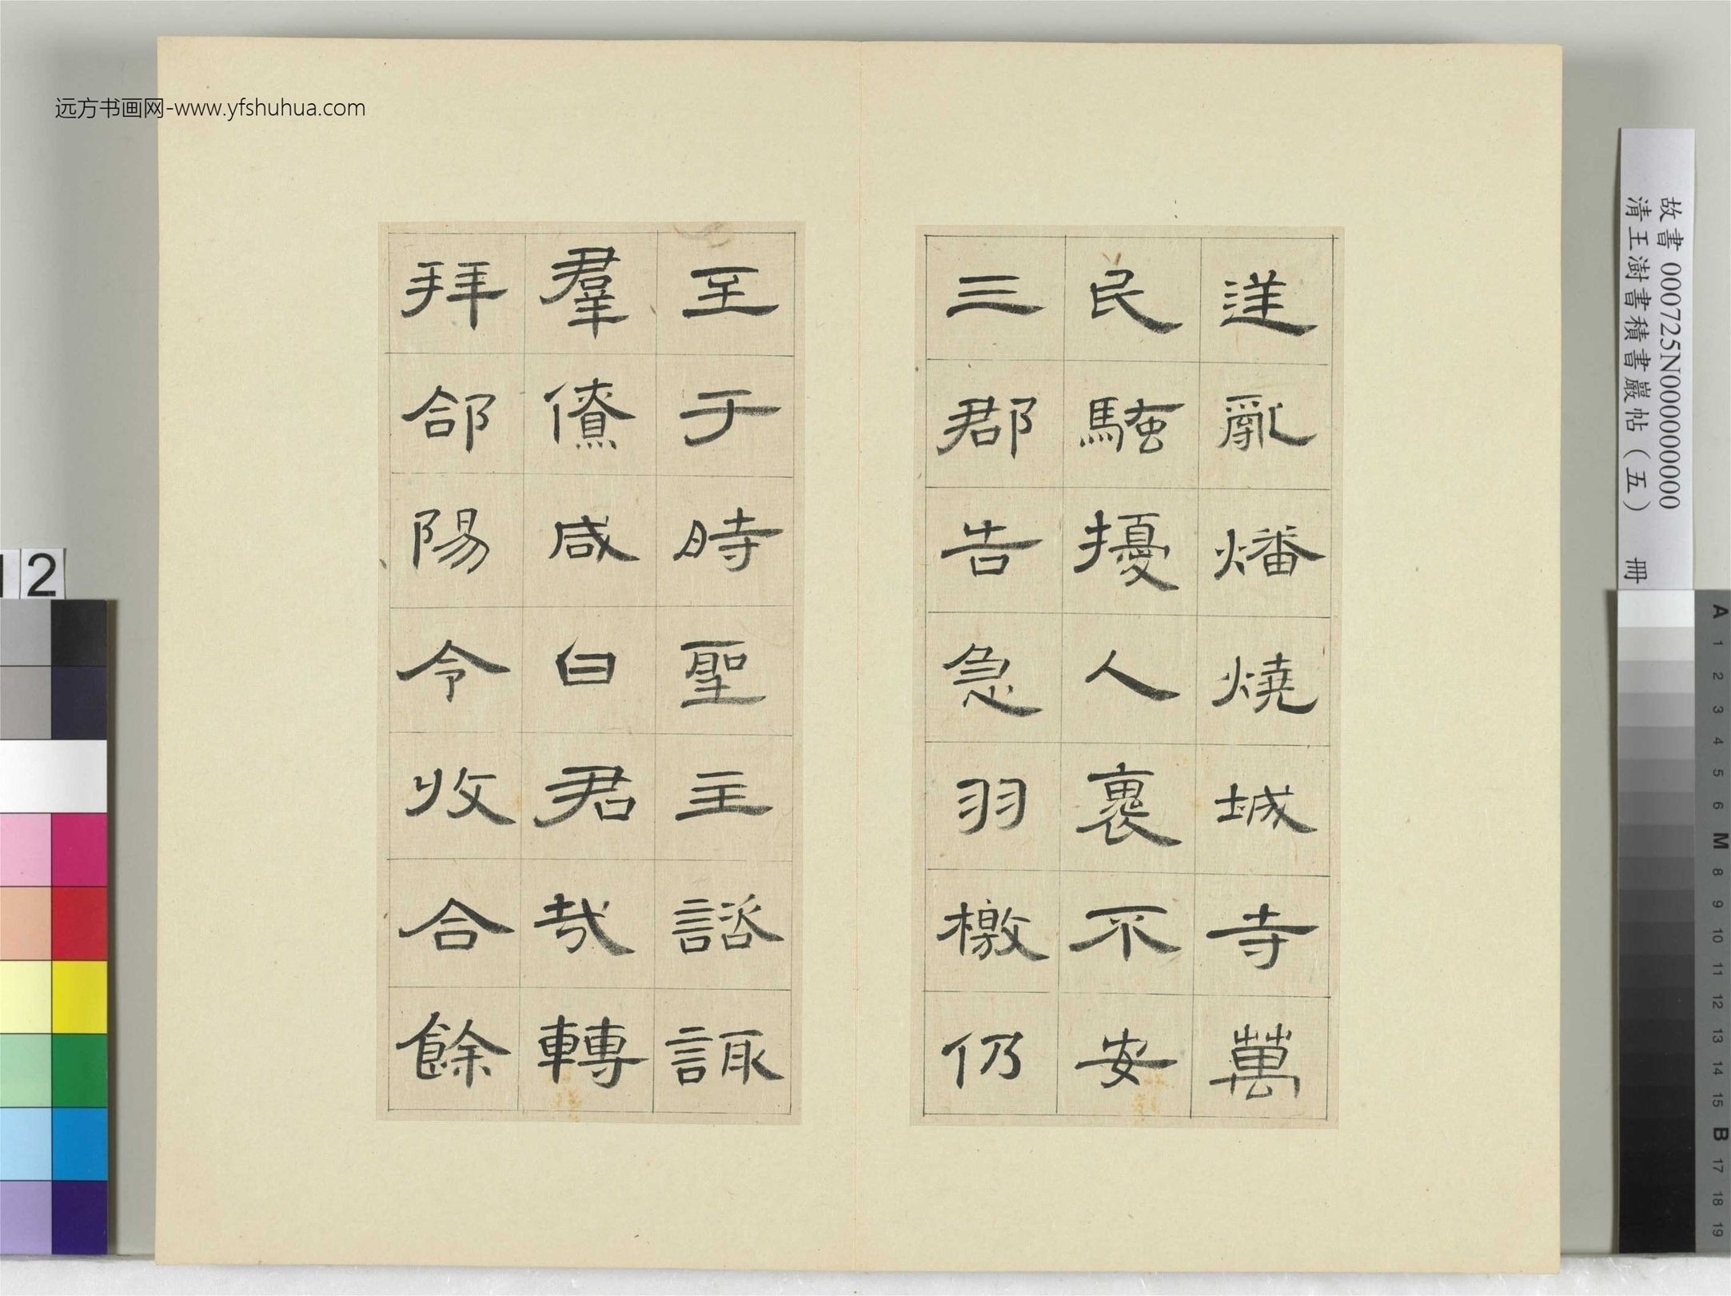 逆亂燔燒城寺萬
民騷擾人裹不安
三郡告急羽檄仍
至于時聖主諮諏
羣僚咸曰君哉轉
拜郃陽令收合餘
远方书画网-www.yfshuhua.com
故書 000725N000000000
清王澍書積書巖帖（五） 冊
12
A
1
2
3
4
5
6
M
8
9
10
11
12
13
14
15
B
17
18
19